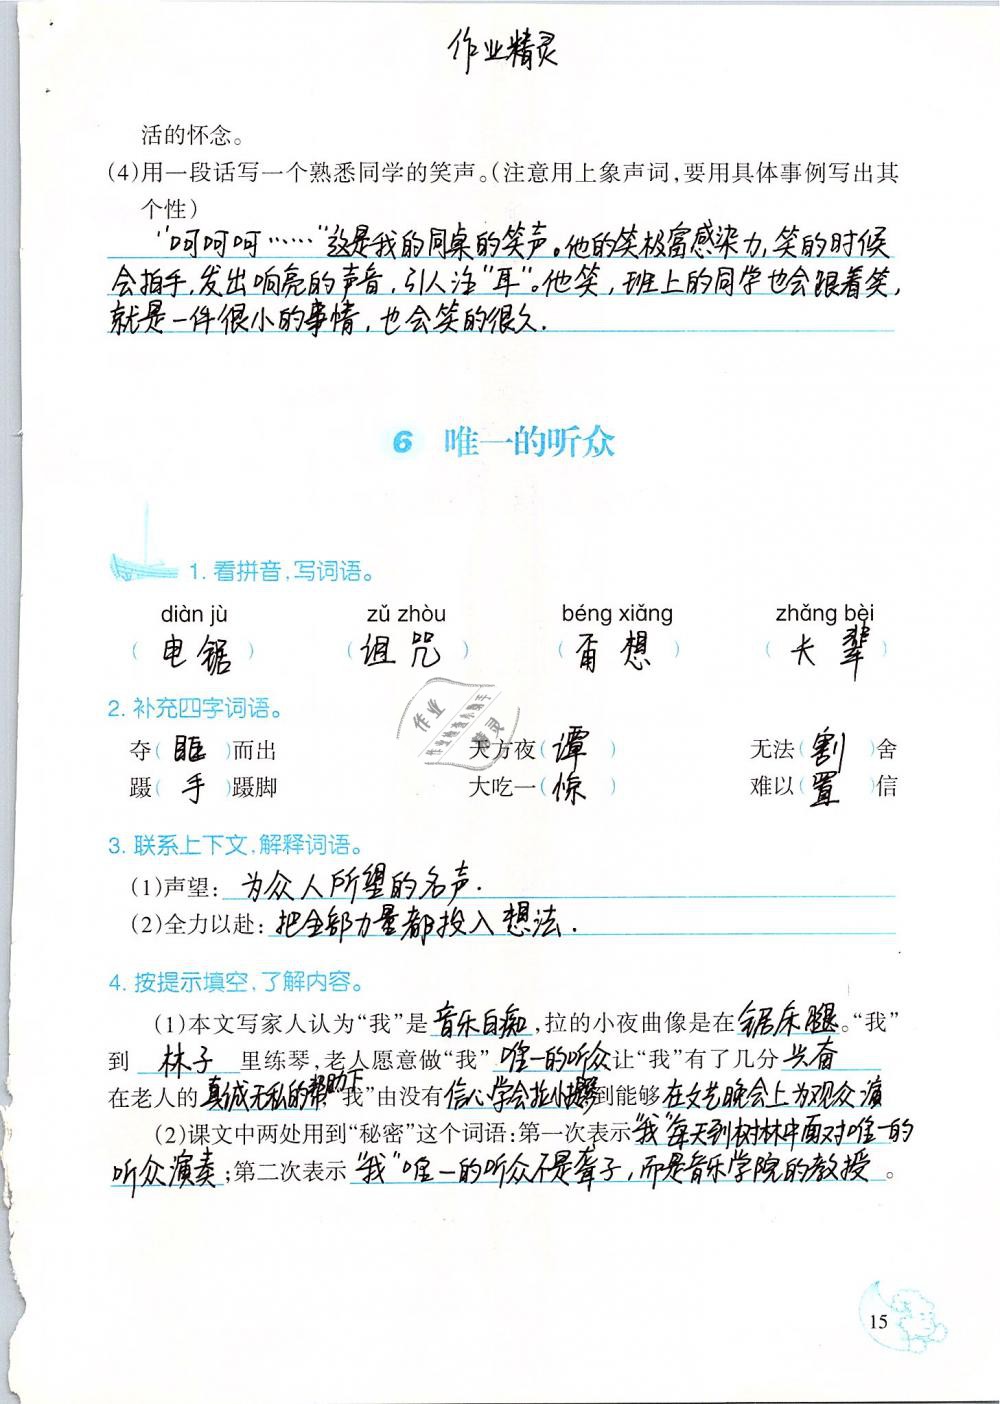 作业精灵
活的怀念。
(4)用一段话写一个熟悉同学的笑声。(注意用上象声词,要用具体事例写出其
个性)
“呵呵呵……”这是我的同桌的笑声。他的笑极富感染力,笑的时候
会拍手,发出响亮的声音,引人注“耳”。他笑,班上的同学也会跟着笑,
就是一件很小的事情,也会笑的很久.
6 唯一的听众
1. 看拼音,写词语。
diàn jù zǔ zhòu béng xiǎng zhǎng bèi
(电锯) (诅咒) (甭想) (长辈)
2. 补充四字词语。
夺(眶)而出 天方夜(谭) 无法(割)舍
蹑(手)蹑脚 大吃一(惊) 难以(置)信
3. 联系上下文,解释词语。
(1)声望:为众人所望的名声.
(2)全力以赴:把全部力量都投入想法.
4. 按提示填空,了解内容。
(1)本文写家人认为“我”是音乐白痴,拉的小夜曲像是在锯床腿。“我”
到 林子 里练琴,老人愿意做“我”唯一的听众让“我”有了几分兴奋
在老人的真诚无私的帮助下“我”由没有信心学会拉小提琴到能够在文艺晚会上为观众演
(2)课文中两处用到“秘密”这个词语:第一次表示“我”每天到树林中面对唯一的
听众演奏;第二次表示“我”唯一的听众不是聋子,而是音乐学院的教授。
作业
精灵
15